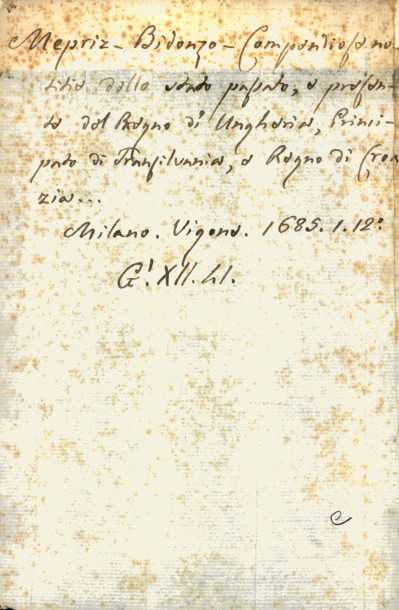 Mepriz - Bidonzo - Compendiosa no-
titia dello stato passato, e presen-
te del Regno di Ungheria, Princi-
pato di Transilvania, e Regno di Croa-
zia...
Milano. Vigone. 1685. 1. 12º
G'. XII. 41.
e